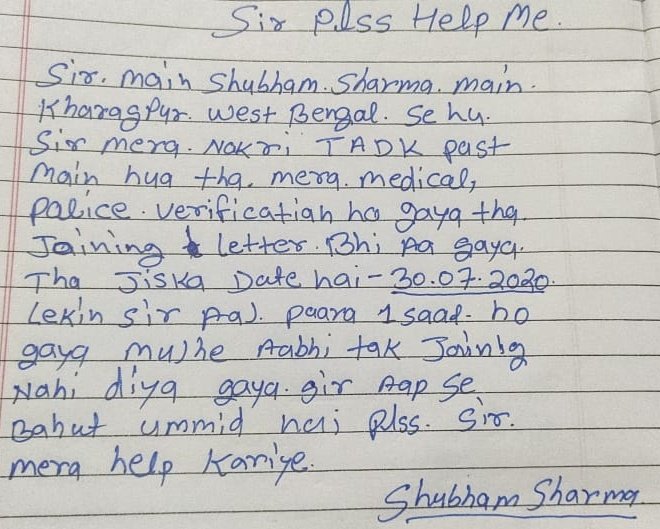 Sir Plss Help Me.
Sir. main Shubham. Sharma. main.
Kharagpur. West Bengal. se hu.
Sir mera. Nokri TADK past
main hua tha. mera. medical,
palice. verification ho gaya tha.
Joining letter. Bhi Aa gaya.
Tha Jiska Date hai - 30.07.2020.
Lekin sir Aaj. paara 1 saal. ho
gaya mujhe Aabhi tak Joining
Nahi diya gaya. sir Aap se
Bahut ummid hai Plss. Sir.
mera help Kariye.
Shubham Sharma